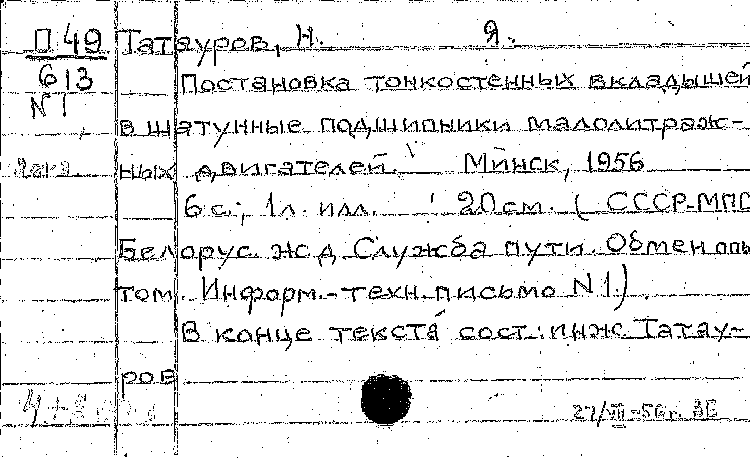 П 49 Татауров, Н. Я.
613 Постановка тонкостенных вкладышей
N 1 в шатунные подшипники малолитраж-
ных двигателей. Минск, 1956
6 с.; 1 л. илл. 20 см. ( СССР-МПС
Белорус. ж д Служба пути. Обмен опы
том. Информ.-техн. письмо N 1.)
В конце текста сост.: инж. Татау-
ров
27/VII-56г. ЗЕ